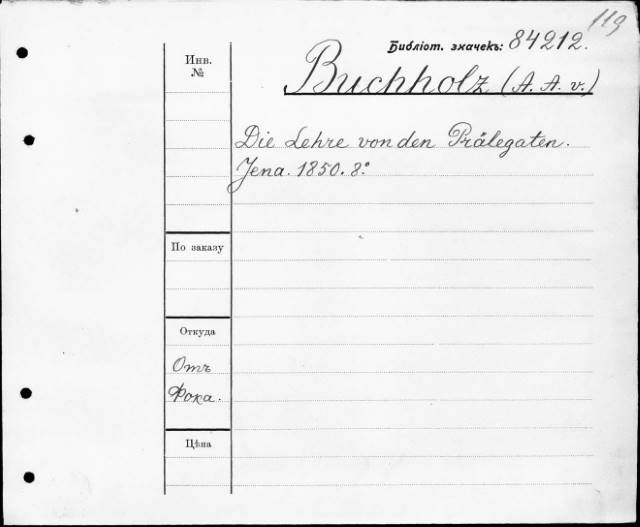 119
Библіот. значекъ: 84212.
Инв.
№
Buchholz (A. A. v.)
Die Lehre von den Prälegaten.
Jena. 1850. 8°
По заказу
Откуда
Отъ
Фока.
Цѣна